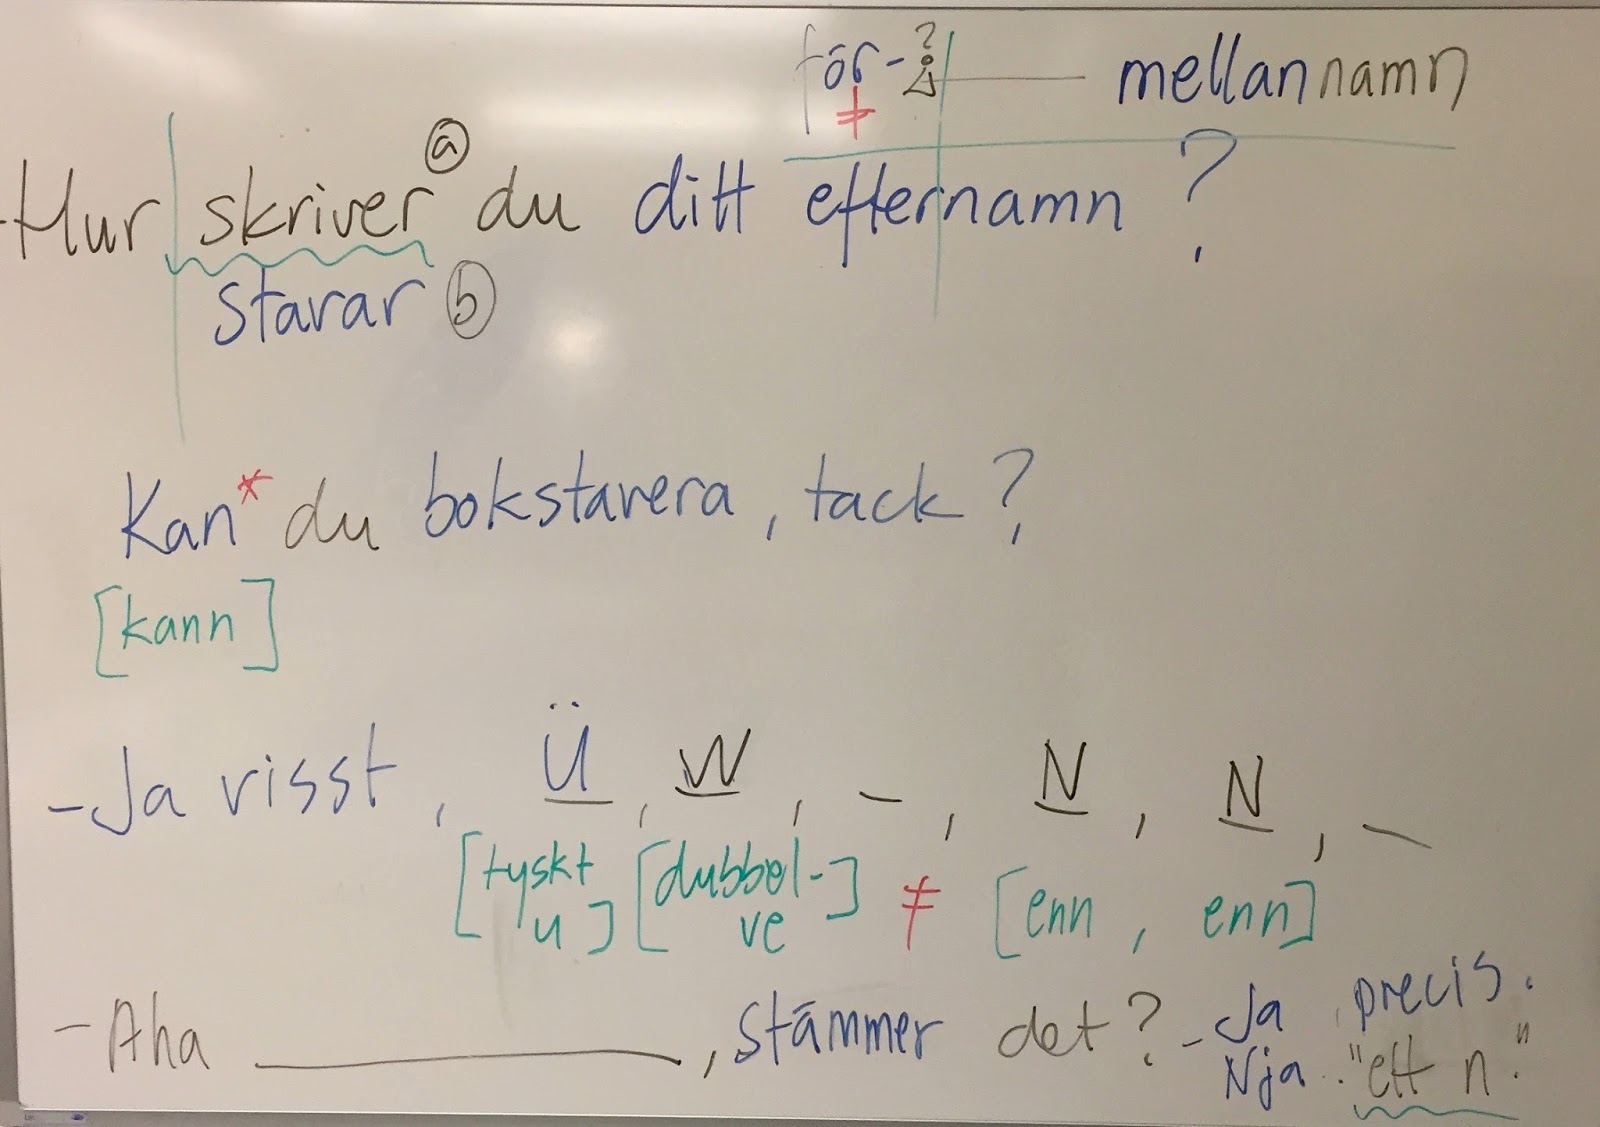 för-? mellannamn
≠
-Hur skriver ⓐ du ditt efternamn ?
stavar ⓑ
Kan* du bokstavera, tack?
[kann]
-Ja visst, Ü, W, _, N, N, _
[tyskt u] [dubbel-ve] ≠ [enn, enn]
-Aha __________, stämmer det? -Ja, precis.
Nja.. "ett n."